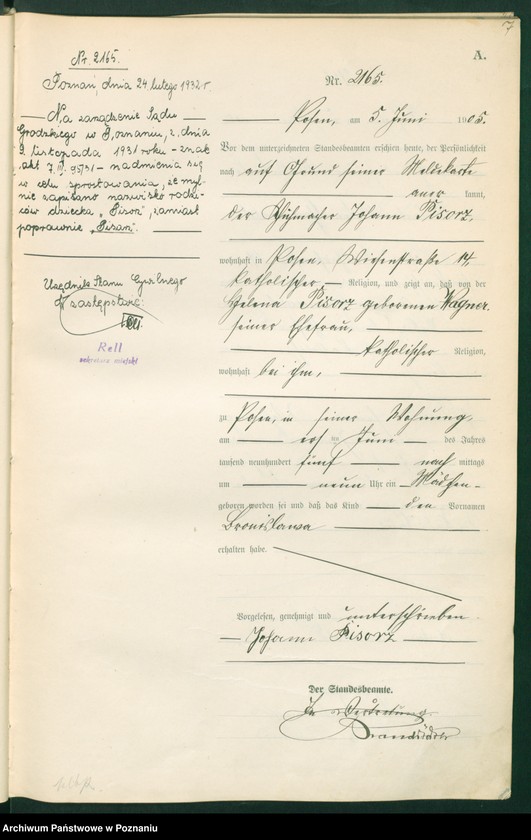 A.
Nr. 2165.
Posen, am 5. Juni 1905.
Vor dem unterzeichneten Standesbeamten erschien heute, der Persönlichkeit
nach auf Grund seiner Meldekarte
anerkannt,
der Schuhmacher Johann Pisorz,
wohnhaft in Posen, Wiesenstraße 14,
katholischer Religion, und zeigte an, daß von der
Helena Pisorz geborenen Wagner
seiner Ehefrau,
katholischer Religion,
wohnhaft bei ihm,
zu Posen, in seiner Wohnung,
am ersten Juni des Jahres
tausend neunhundert fünf nach mittags
um neun Uhr ein Mädchen
geboren worden sei und daß das Kind den Vornamen
Bronislawa
erhalten habe.
Vorgelesen, genehmigt und unterschrieben
Johann Pisorz
Der Standesbeamte.
In Vertretung
Nr. 2165.
Poznań, dnia 24 lutego 1932 r.
Na zarządzenie Sądu
Grodzkiego w Poznaniu, z dnia
listopada 1931 roku - znak
akt 7. - nadmienia się
w celu sprostowania, że myl-
nie zapisano nazwisko rodzi-
ców dziecka „ ", zamiast
poprawnie „ ".
Urzędnik Stanu Cywilnego
W zastępstwie:
Rell
sekretarz miejski
Archiwum Państwowe w Poznaniu